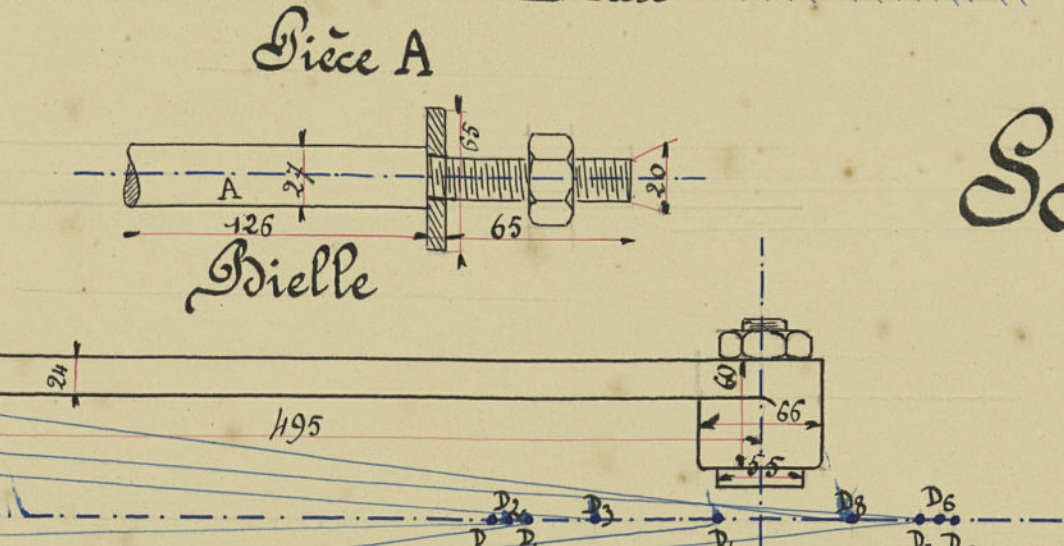 Pièce A
65
27
A
20
126
65
Bielle
24
60
66
495
55
D2 D3 D8 D6